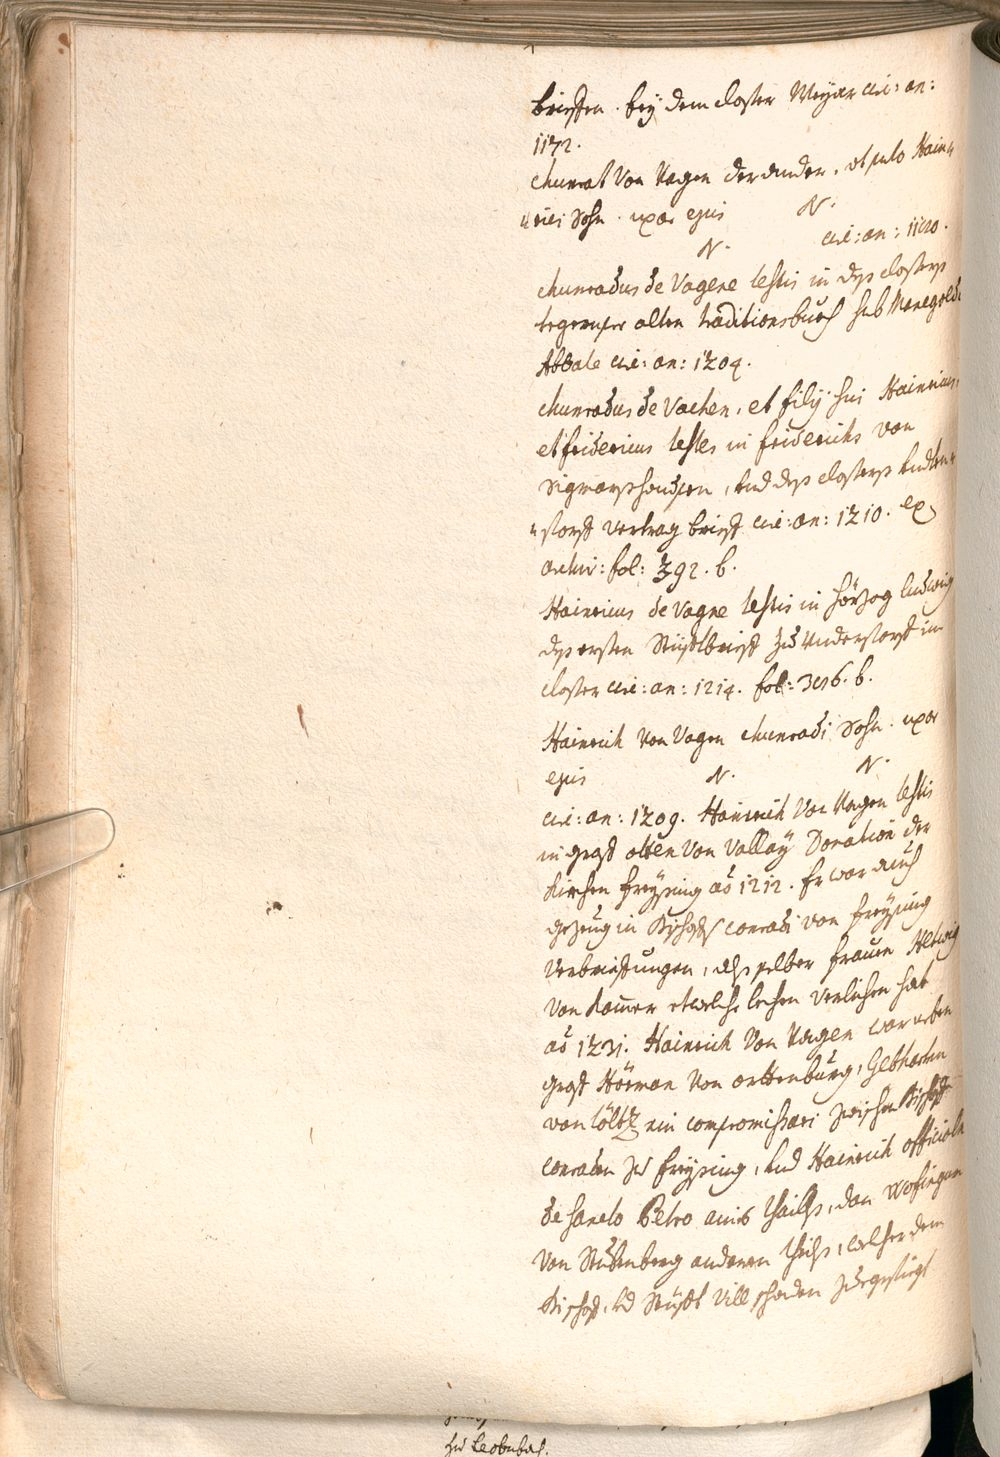 briefen. bey dem closter Weyar circ: an:
1172.
Chunrat von Vagen der ander, ut puto Hain=
=rici Sohn. uxor ejus N.
N. circ: an: 1190.
Chunradus de Vagene testis in dess closters
tegernsee alten traditionsbuch sub Manegoldo
Abbate circ: an: 1204.
Chunradus de Vachen, et filij sui Hainricus,
et fridericus testes in friderichs von
Sigmarshausen, und dess closters Undten=
=storff vertrag brieff circ: an: 1210. ex
archiv: fol: 392. b.
Hainricus de Vagne testis in Hörzog Ludwig
dess ersten Stüfftbrieff zu Understorff im
closter circ: an: 1214. fol: 396. b.
Hainrich von Vagen Chunradi Sohn. uxor
ejus N. N.
circ: an: 1209. Hainrich von Vagen testis
in graff otten von Vallaÿ Donation der
Kirchen freysing aõ 1212. Er war auch
gezeug in Bischoffs Conradi von freysing
Verbrieffungen, alss selber frauen Hedwig
von Kamer etwelche lechen verlichen hat
aõ 1231. Hainrich von Vagen war neben
graff Hörman von orttenburg, Gebharten
von töltz ein compromissari zwischen Bischoff
Conraden zu freysing, und Hainrich officialn
de Sancto Petro ains thailss, dan Wolfingum
von Stubenberg anderen theilss, welcher dem
Bischoff, und Stüfft vill schaden zuegefüegt
zu Leobnbach.